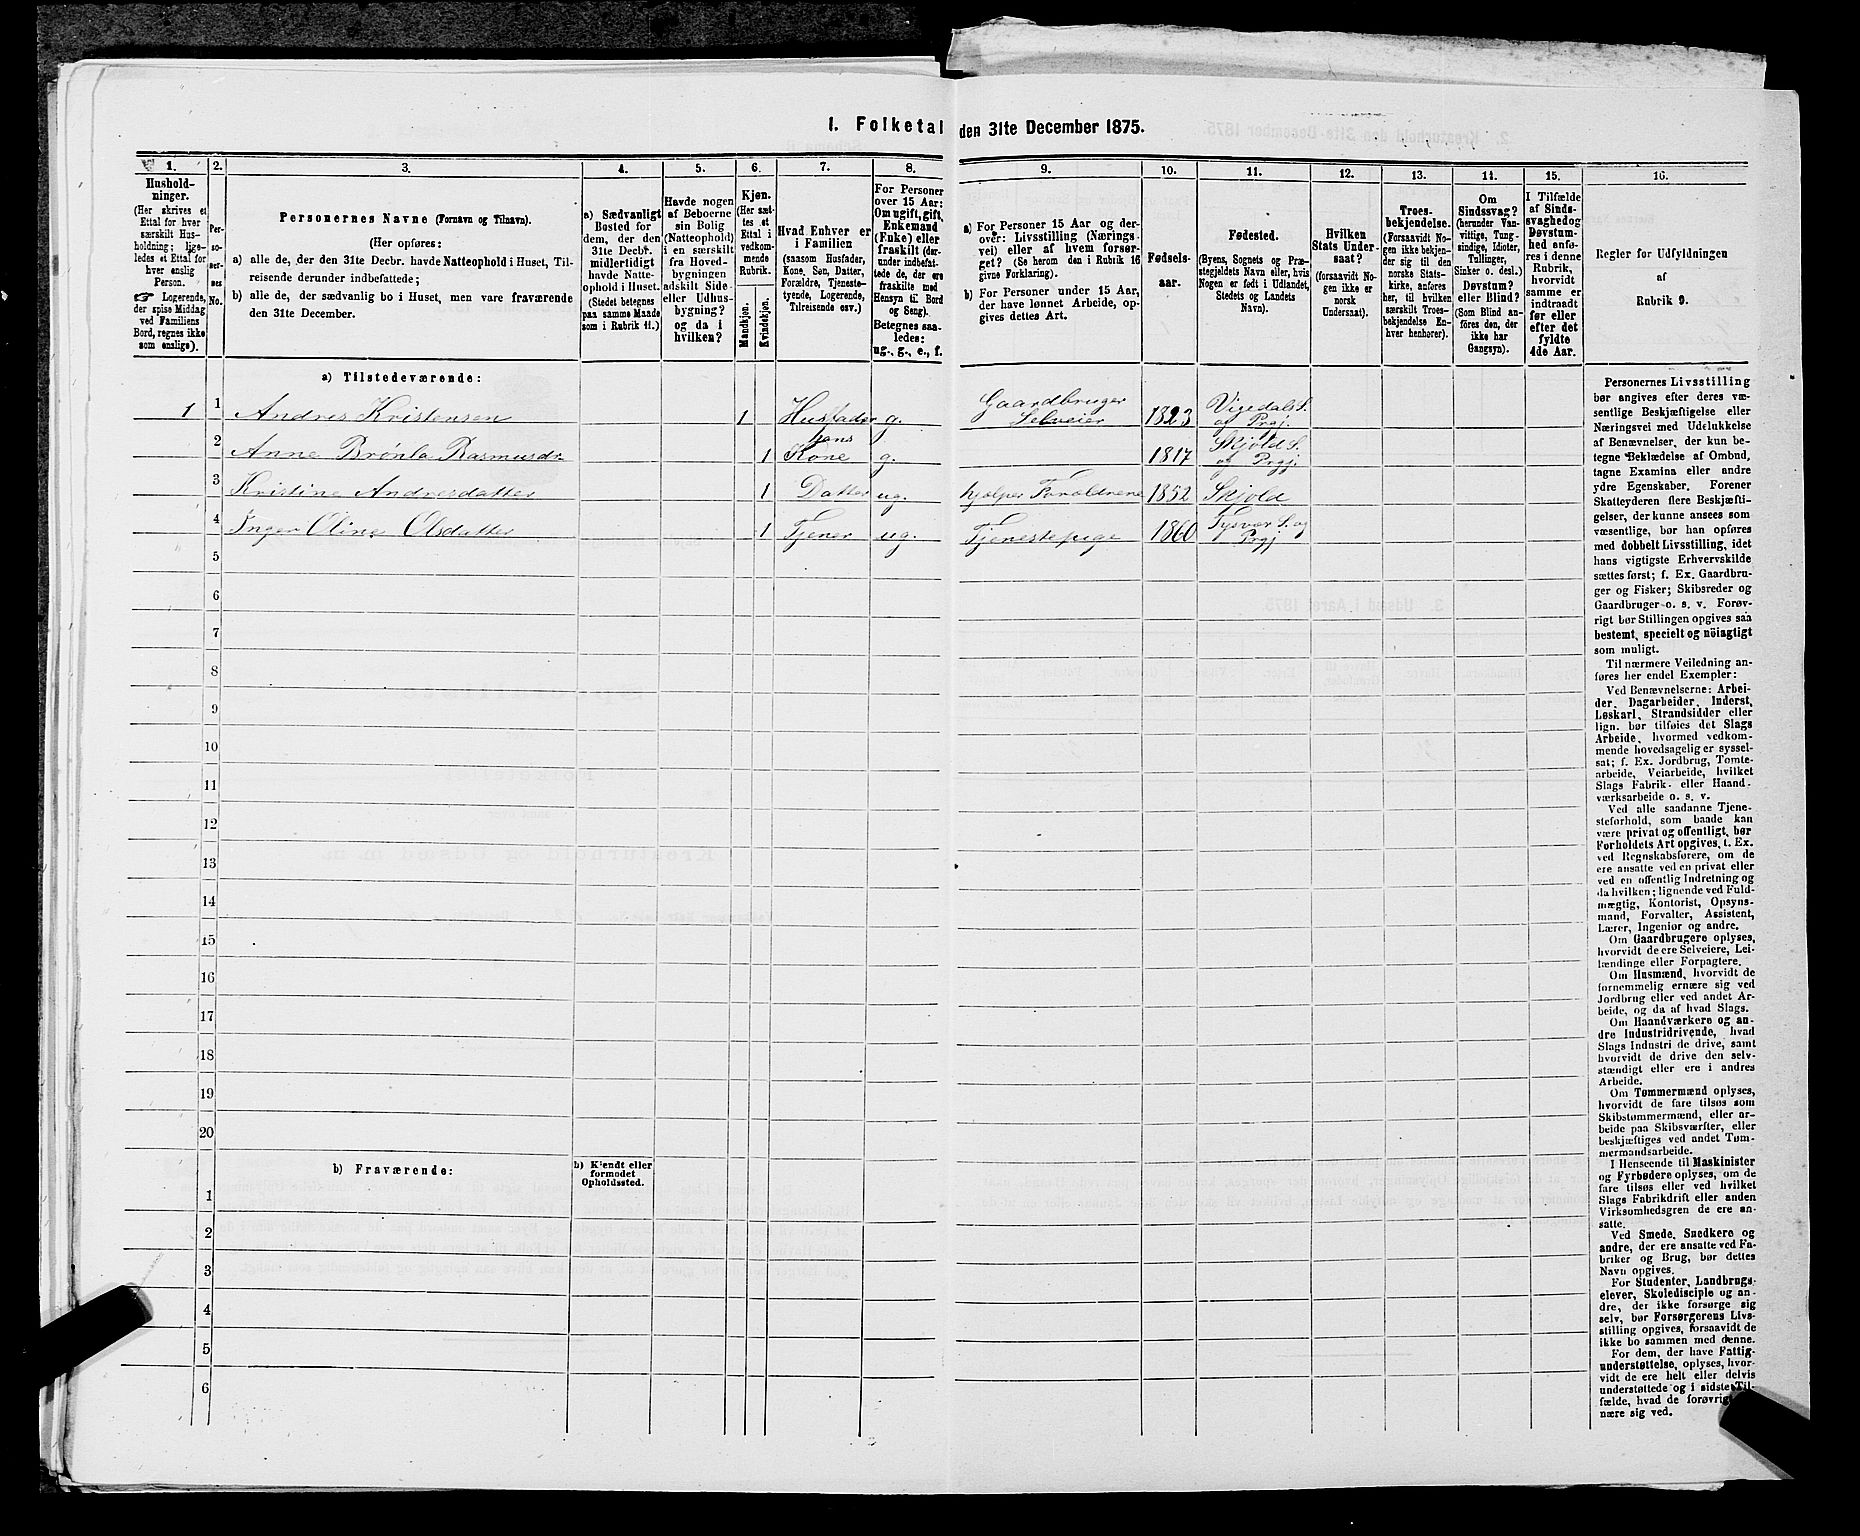 1. Folketal den 31te December 1875.
1. 2. 3. 4. 5. 6. 7. 8. 9. 10. 11. 12. 13. 14. 15. 16.
Hushold-
ninger.
(Her skrives et
Ettal for hver
særskilt Hus-
holdning; lige-
ledes et Ettal for
hver enslig
Person.
☞ Logerende,
der spise Middag
ved Familiens
Bord, regnes ikke
som enslige).
Per-
so-
ner-
nes
No.
Personernes Navne (Fornavn og Tilnavn).
(Her opføres:
a) alle de, der den 31te Decbr. havde Natteophold i Huset, Til-
reisende derunder indbefattede;
b) alle de, der sædvanlig bo i Huset, men vare fraværende
den 31te December.
a) Sædvanligt
Bosted for
dem, der den
31te Decbr.
midlertidigt
havde Natte-
ophold i Huset.
(Stedet betegnes
paa samme Maade
som i Rubrik 11.)
Havde nogen
af Beboerne
sin Bolig
(Natteophold)
i en særskilt
fra Hoved-
bygningen
adskilt Side-
eller Udhus-
bygning?
og da i
hvilken?
Kjøn.
(Her sæt-
tes et
Ettal i
vedkom-
mende
Rubrik.
Mandkjøn.
Kvindekjøn.
Hvad Enhver er
i Familien
(saasom Husfader,
Kone, Søn, Datter,
Forældre, Tjeneste-
tyende, Logerende,
Tilreisende osv.)
For Personer
over 15 Aar:
Om ugift, gift,
Enkemand
(Enke) eller
fraskilt (der-
under indbefat-
tede de, der ere
fraskilte med
Hensyn til Bord
og Seng).
Betegnes saa-
ledes:
ug., g., e., f.
a) For Personer 15 Aar og der-
over: Livsstilling (Nærings-
vei) eller af hvem forsør-
get? (Se herom den i Rubrik 16
givne Forklaring).
b) For Personer under 15 Aar,
der have lønnet Arbeide, op-
gives dettes Art.
Fødsels-
aar.
Fødested.
(Byens, Sognets og Præ-
stegjeldets Navn eller, hvis
Nogen er født i Udlandet,
Stedets og Landets
Navn).
Hvilken
Stats Under-
saat?
(forsaavidt No-
gen ikke er
norsk
Undersaat).
Troes-
bekjendelse.
(Forsaavidt No-
gen ikke bekjen-
der sig til den
norske Stats-
kirke, anføres
her, til hvilken
særskilt Troes-
bekjendelse En-
hver henhører).
Om
Sindssvag?
(herunder Van-
vittige, Tung-
sindige, Idioter,
Tullinger,
Sinker o. desl.)
Døvstum?
eller Blind?
(Som Blind an-
føres den, der
ikke har
Gangsyn).
I Tilfælde
af Sinds-
svaghed og
Døvstum-
hed anfø-
res i denne
Rubrik,
hvorvidt
samme er
indtraadt
før eller
efter det
fyldte
4de Aar.
Regler for Udfyldningen
af
Rubrik 9.
a) Tilstedeværende:
1 1 Andres Kristensen 1 Husfader g. Gaardbruger Selveier 1823 Vigedals S. og Prgj.
2 Anne Brønla Rasmusdr. 1 hans Kone g. 1817 Skjold S. og Prgj.
3 Kristine Andresdatter 1 Datter ug. hjelper Forældrene 1852 Skjold
4 Inger Oline Olsdatter 1 Tjener ug. Tjenestepige 1860 Tysvær S. og Prgj.
5
6
7
8
9
10
11
12
13
14
15
16
17
18
19
20
b) Fraværende:
b) Kjendt eller
formodet
Opholdssted.
1
2
3
4
5
6
Personernes Livsstilling
bør angives efter deres væ-
sentlige Beskjæftigelse eller
Næringsvei med Udelukkelse
af Benævnelser, der kun be-
tegne Beklædelse af Ombud,
tagne Examina eller andre
ydre Egenskaber. Forener
Skatteyderen flere Beskjæfti-
gelser, der kunne ansees som
væsentlige, bør han opføres
med dobbelt Livsstilling, idet
hans vigtigste Erhvervskilde
sættes først; f. Ex. Gaardbru-
ger og Fisker; Skibsreder og
Gaardbruger o. s. v. Forøv-
rigt bør Stillingen opgives saa
bestemt, specielt og nöiagtigt
som muligt.
Til nærmere Veiledning an-
føres her endel Exempler:
Ved Benævnelserne: Arbei-
der, Dagarbeider, Inderst,
Løskarl, Strandsidder eller
lign. bør tilføies det Slags
Arbeide, hvormed vedkom-
mende hovedsagelig er syssel-
sat; f. Ex. Jordbrug, Tomte-
arbeide, Veiarbeide, hvilket
Slags Fabrik- eller Haand-
værksarbeide o. s. v.
Ved alle saadanne Tjene-
steforhold, som baade kan
være privat og offentligt, bør
Forholdets Art opgives, t. Ex.
ved Regnskabsførere, om de
ere ansatte ved en privat eller
ved en offentlig Indretning og
da hvilken; lignende ved Fuld-
mægtig, Kontorist, Opsyns-
mand, Forvalter, Assistent,
Lærer, Ingeniør og andre.
Om Gaardbrugere oplyses,
hvorvidt de ere Selveiere, Lei-
lændinge eller Forpagtere.
Om Husmænd, hvorvidt de
fornemmelig ernære sig ved
Jordbrug eller ved andet Ar-
beide, og da af hvad Slags.
Om Haandværkere og an-
dre Industridrivende, hvad
Slags Industri de drive, samt
hvorvidt de drive den selv-
stændigt eller ere i andres
Arbeide.
Om Tømmermænd oplyses,
hvorvidt de fare tilsøs som
Skibstømmermænd, eller ar-
beide paa Skibsværfter, eller
beskjæftiges ved andet Tøm-
mermandsarbeide.
I Henseende til Maskinister
og Fyrbødere oplyses, om de
fare tilsøs eller ved hvilket
Slags Fabrikdrift eller anden
Virksomhedsgren de ere an-
satte.
Ved Smede, Snedkere og
andre, der ere ansatte ved Fa-
briker og Brug, bør dettes
Navn opgives.
For Studenter, Landbrugs-
elever, Skoledisciple og an-
dre, der ikke forsørge sig
selv, bør Forsørgerens Livs-
stilling opgives, forsaavidt de
ikke bo sammen med denne.
For dem, der have Fattig-
understøttelse, oplyses, hvor-
vidt de ere helt eller delvis
understøttede og i sidste Til-
fælde, hvad de forøvrigt
nære sig ved.